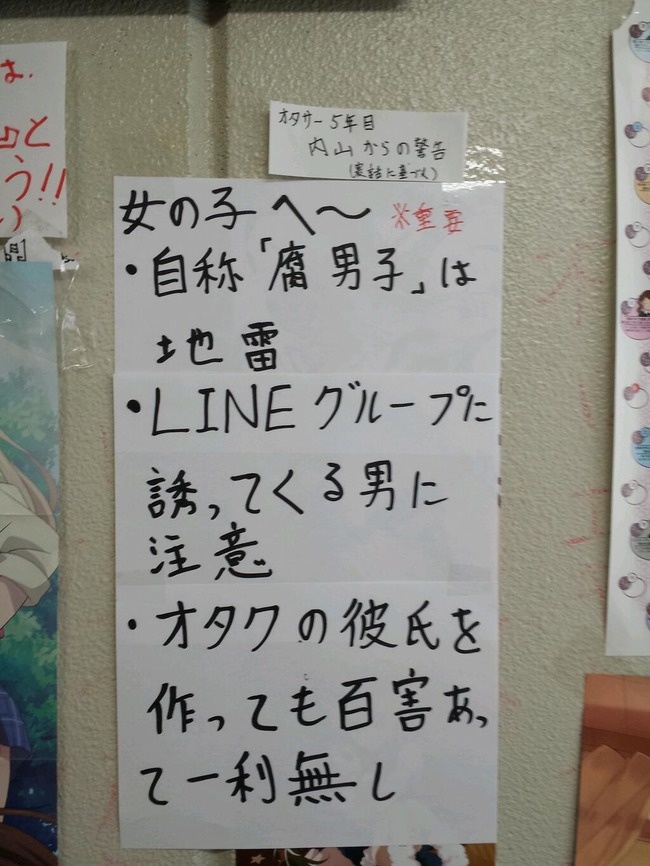 オタサー5年目
内山からの警告
(実話に基づく)
女の子へ〜 ※重要
・自称「腐男子」は
地雷
・LINEグループに
誘ってくる男に
注意
・オタクの彼氏を
作っても百害あっ
て一利無し
は.
と
う!!